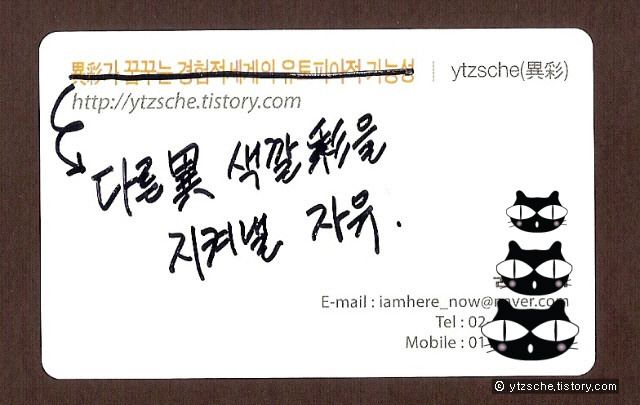 異彩가 꿈꾸는 경험적세계의 유토피아적 가능성 | ytzsche(異彩)
http://ytzsche.tistory.com
다른異 색깔彩을
지켜낼 자유.
E-mail : iamhere_now@naver.com
Tel : 02
Mobile : 01
© ytzsche.tistory.com